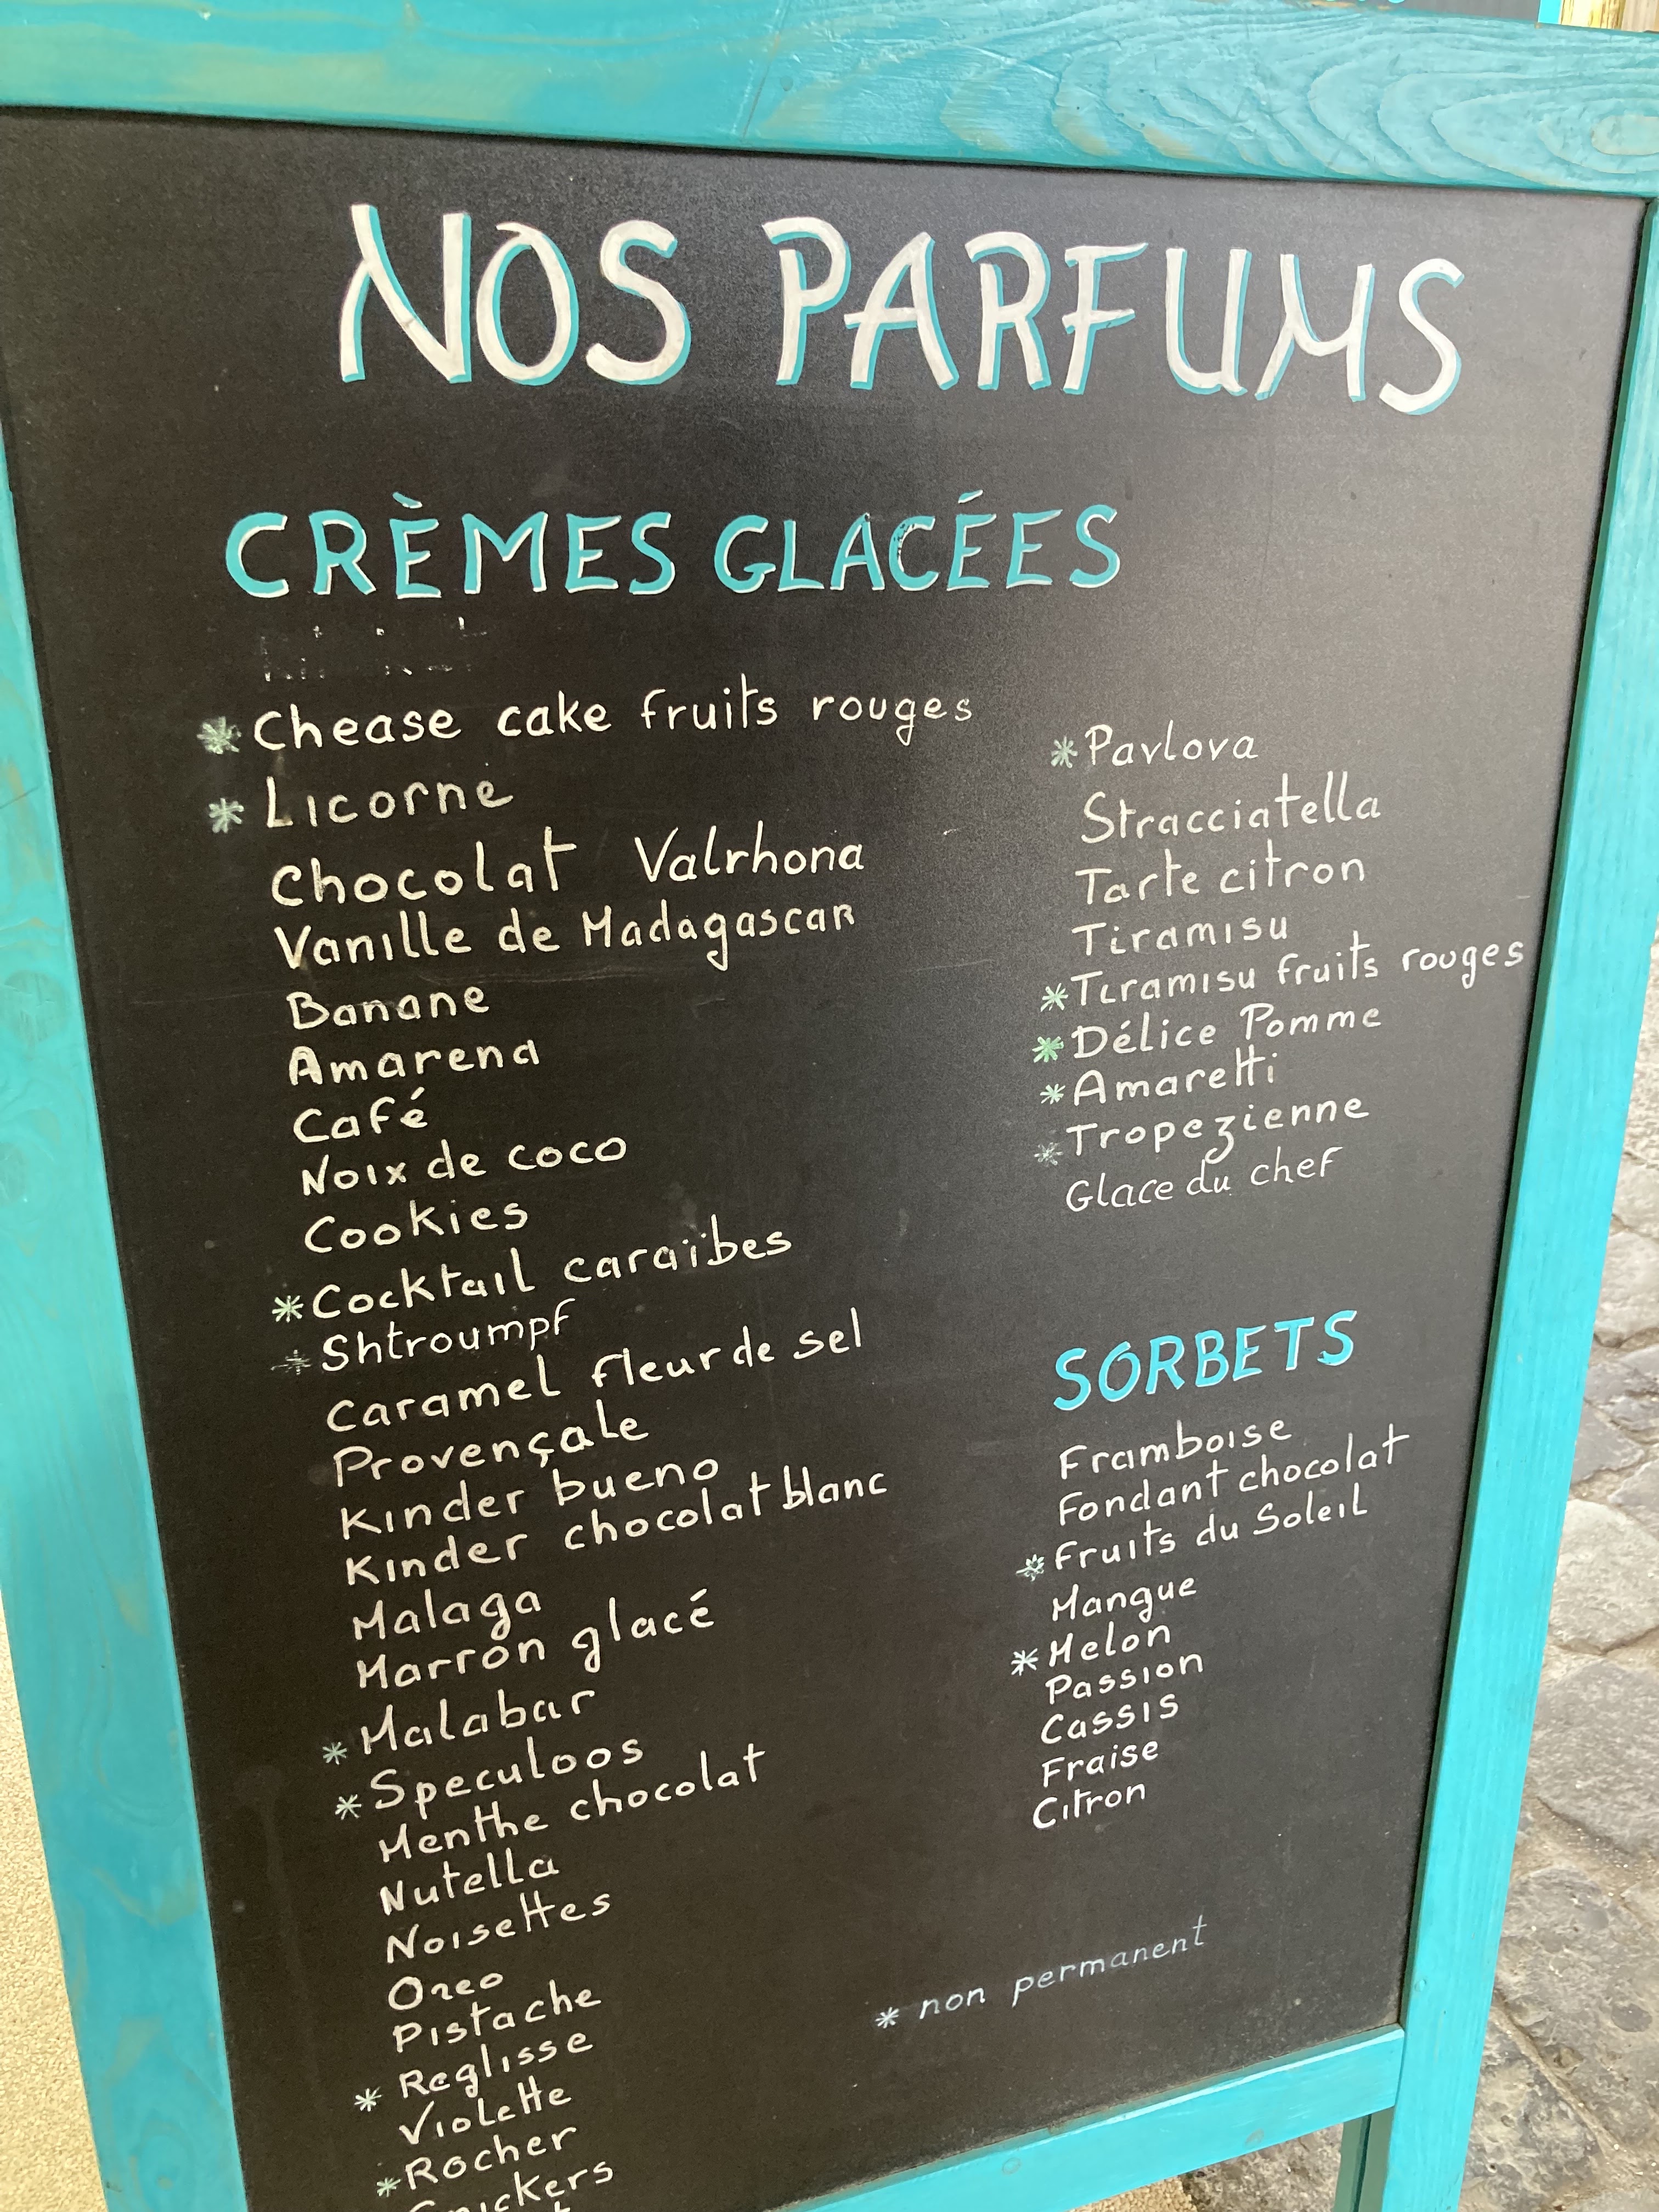 NOS PARFUMS
CRÈMES GLACÉES
* Chease cake fruits rouges
* Licorne
Chocolat Valrhona
Vanille de Madagascar
Banane
Amarena
Café
Noix de coco
Cookies
* Cocktail caraïbes
* Shtroumpf
Caramel fleur de sel
Provençale
Kinder bueno
Kinder chocolat blanc
Malaga
Marron glacé
* Malabar
* Speculoos
Menthe chocolat
Nutella
Noisettes
Oreo
Pistache
* Reglisse
Violette
* Rocher
Snickers
* Pavlova
Stracciatella
Tarte citron
Tiramisu
* Tiramisu fruits rouges
* Délice Pomme
* Amaretti
* Tropezienne
Glace du chef
SORBETS
Framboise
Fondant chocolat
* Fruits du Soleil
Mangue
* Melon
Passion
Cassis
Fraise
Citron
* non permanent